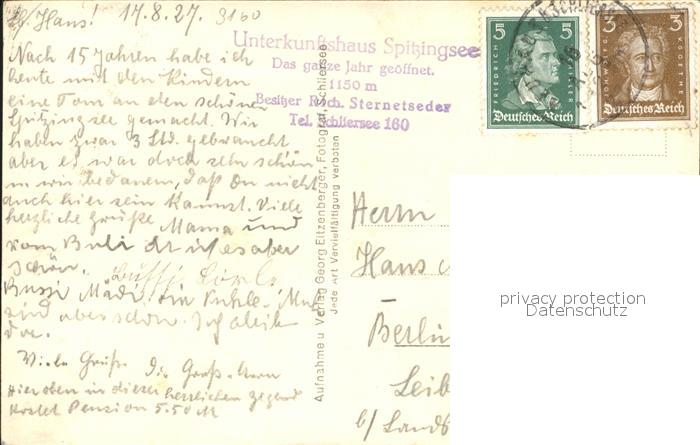 Hans! 17.8.27. 3160
Nach 15 Jahren habe ich
heute mit den Kindern
eine Tour an den schönen
Spitzingsee gemacht. Wir
haben zwar 3 Std. gebraucht
aber es war doch sehr schön
wir bedauern, daß Du nicht
auch hier sein kannst. Viele
herzliche Grüße Mama und
vom Bubi
schön.
Bussi Mädi
sind aber schon.
Viele Grüße
Hier oben in dieser herrlichen Gegend
kostet Pension 5.50 M
Unterkunftshaus Spitzingsee
Das ganze Jahr geöffnet.
1150 m
Besitzer Rich. Sternetseder
Tel. Schliersee 160
Aufnahme u Verlag Georg Eitzenberger, Fotograf, Schliersee
Jede Art Vervielfältigung verboten
5 5
FRIEDRICH SCHILLER
Deutsches Reich
3 3
GOETHE
Deutsches Reich
Herrn
Hans
Berlin
Leib
b/ Landsb
privacy protection
Datenschutz